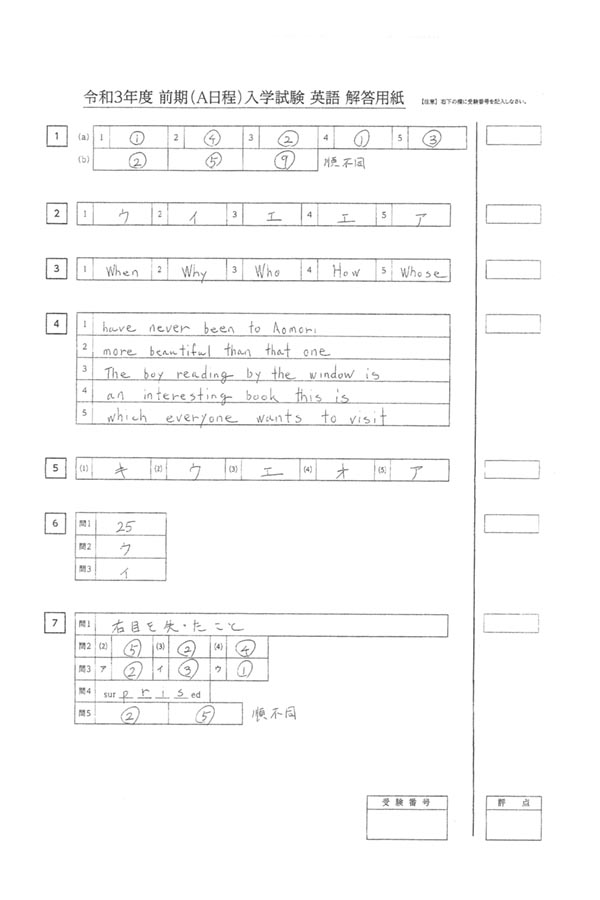 令和3年度 前期(A日程)入学試験 英語 解答用紙 【注意】右下の欄に受験番号を記入しなさい。
1 (a) 1 ① 2 ④ 3 ② 4 ① 5 ③
(b) ② ⑤ ⑨ 順不同
2 1 ウ 2 イ 3 エ 4 エ 5 ア
3 1 When 2 Why 3 Who 4 How 5 Whose
4 1 have never been to Aomori
2 more beautiful than that one
3 The boy reading by the window is
4 an interesting book this is
5 which everyone wants to visit
5 (1) キ (2) ウ (3) エ (4) オ (5) ア
6 問1 25
問2 ウ
問3 イ
7 問1 右目を失ったこと
問2 (2) ⑤ (3) ② (4) ④
問3 ア ② イ ③ ウ ①
問4 sur p r i s ed
問5 ② ⑤ 順不同
受験番号 評点